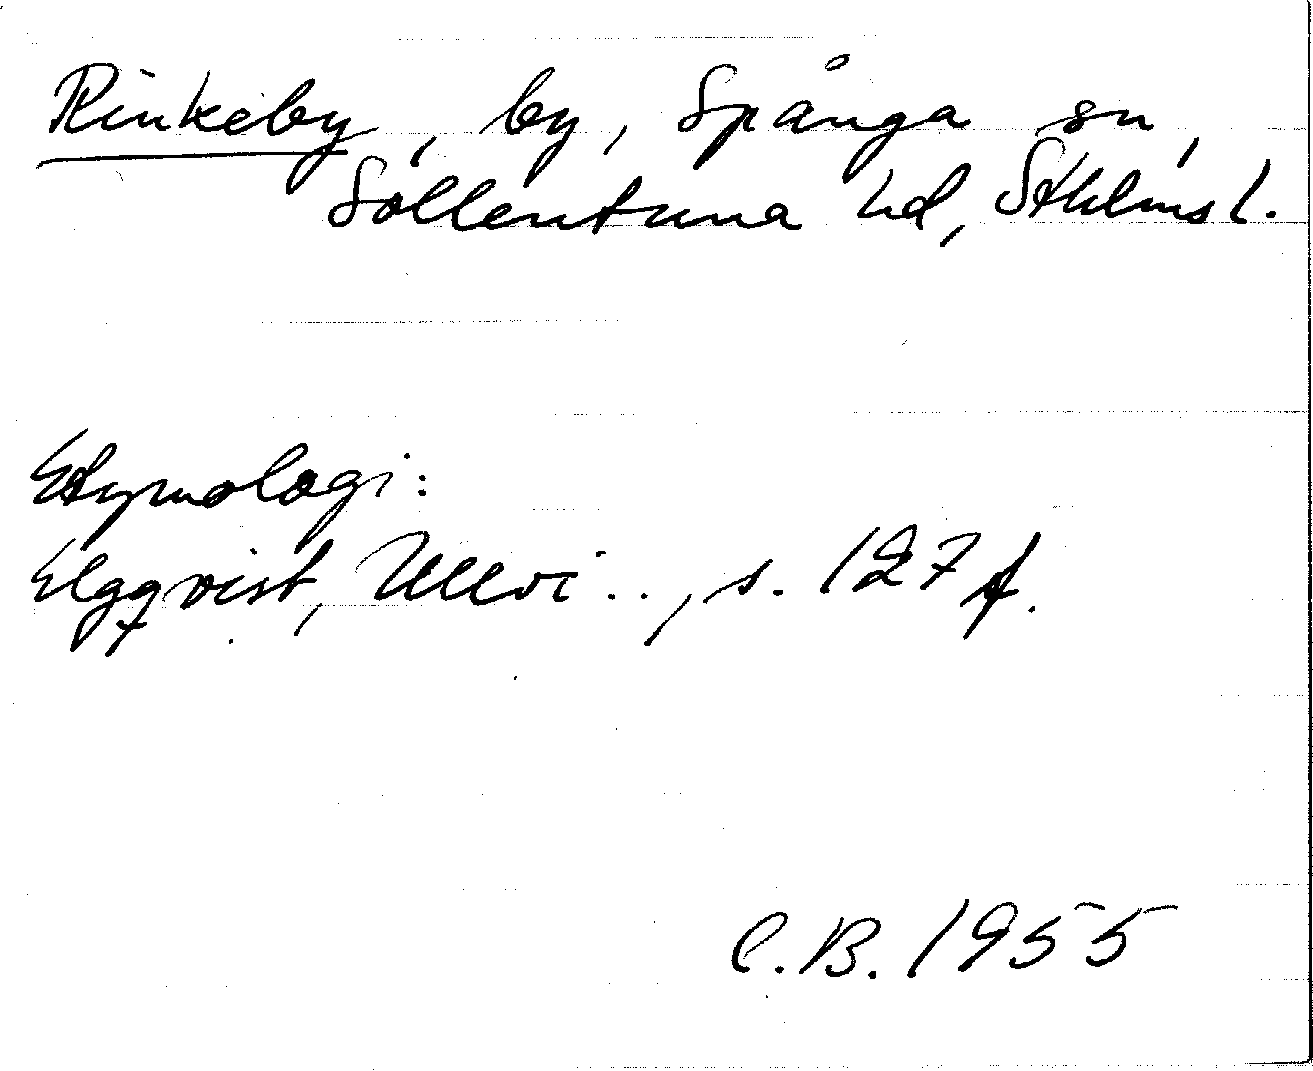 Rinkeby, by, Spånga sn,
Sollentuna hd, Sthlms l.
Etymologi:
Elgqvist, Ullvi..., s. 127 f.
C.B. 1955